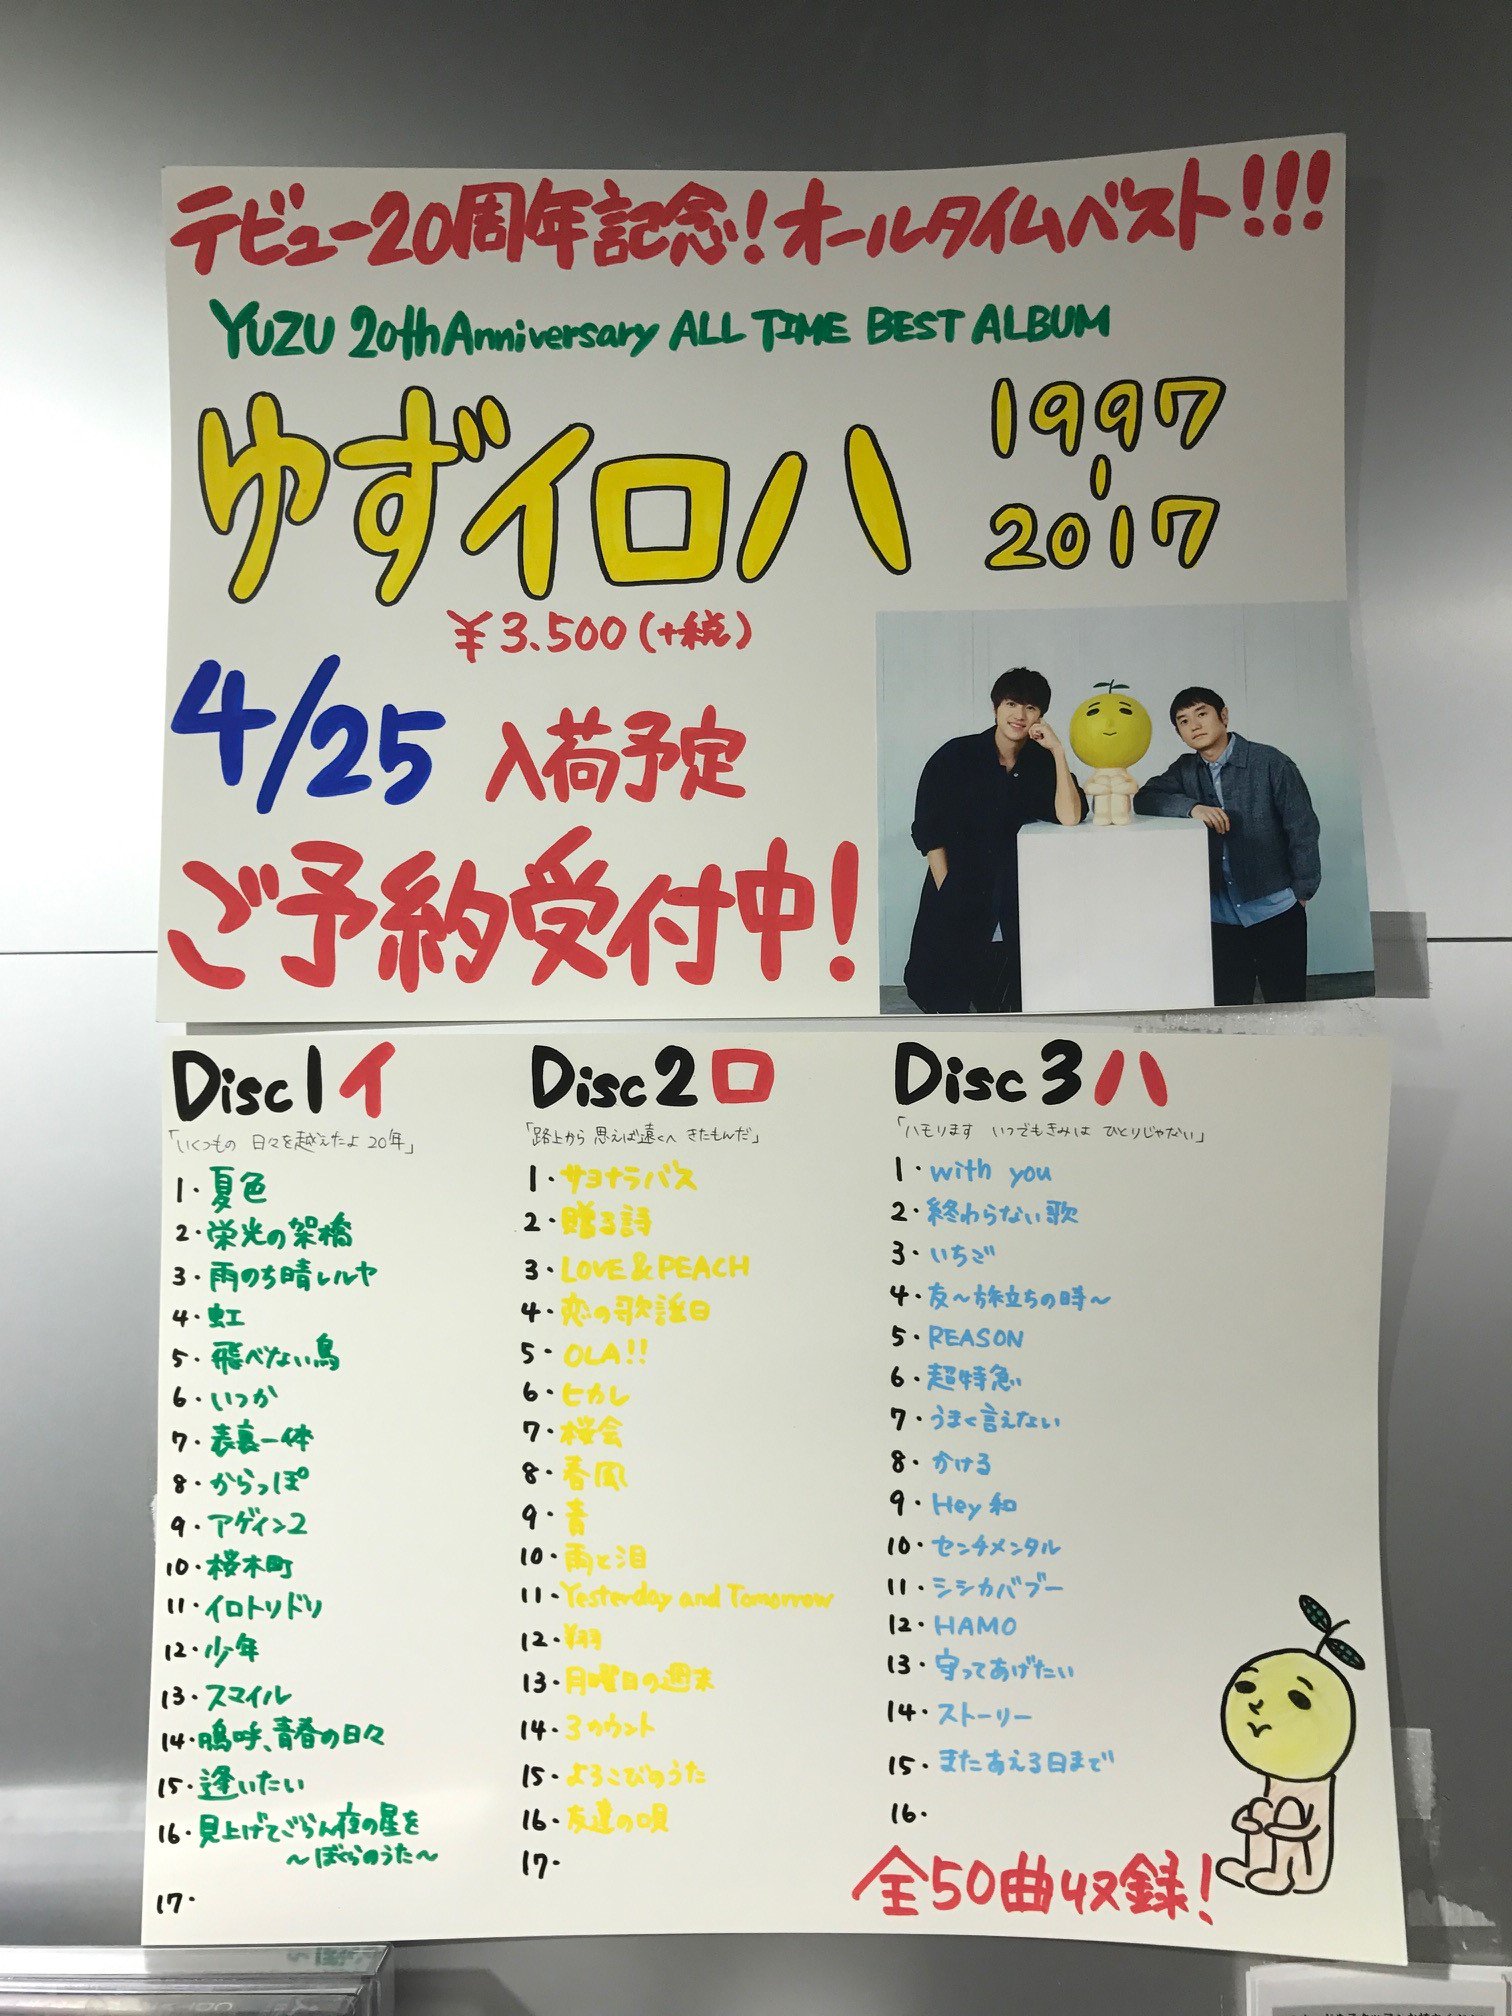 デビュー20周年記念！オールタイムベスト!!!
YUZU 20th Anniversary ALL TIME BEST ALBUM
ゆずイロハ 1997-2017
¥3.500(+税)
4/25 入荷予定
ご予約受付中！
Disc1イ
「いくつもの 日々を越えたよ 20年」
1・夏色
2・栄光の架橋
3・雨のち晴レルヤ
4・虹
5・飛べない鳥
6・いつか
7・表裏一体
8・からっぽ
9・アゲイン2
10・桜木町
11・イロトリドリ
12・少年
13・スマイル
14・嗚呼、青春の日々
15・逢いたい
16・見上げてごらん夜の星を
～ぼくらのうた～
17・
Disc2ロ
「路上から 思えば遠くへ きたもんだ」
1・サヨナラバス
2・贈る詩
3・LOVE & PEACH
4・恋の歌謡日
5・OLA!!
6・ヒカレ
7・桜会
8・春風
9・青
10・雨と泪
11・Yesterday and Tomorrow
12・翔
13・月曜日の週末
14・3カウント
15・よろこびのうた
16・友達の唄
17・
Disc3ハ
「ハモります いつでもきみは ひとりじゃない」
1・with you
2・終わらない歌
3・いちご
4・友～旅立ちの時～
5・REASON
6・超特急
7・うまく言えない
8・かける
9・Hey和
10・センチメンタル
11・シシカバブー
12・HAMO
13・守ってあげたい
14・ストーリー
15・またあえる日まで
16・
全50曲収録！